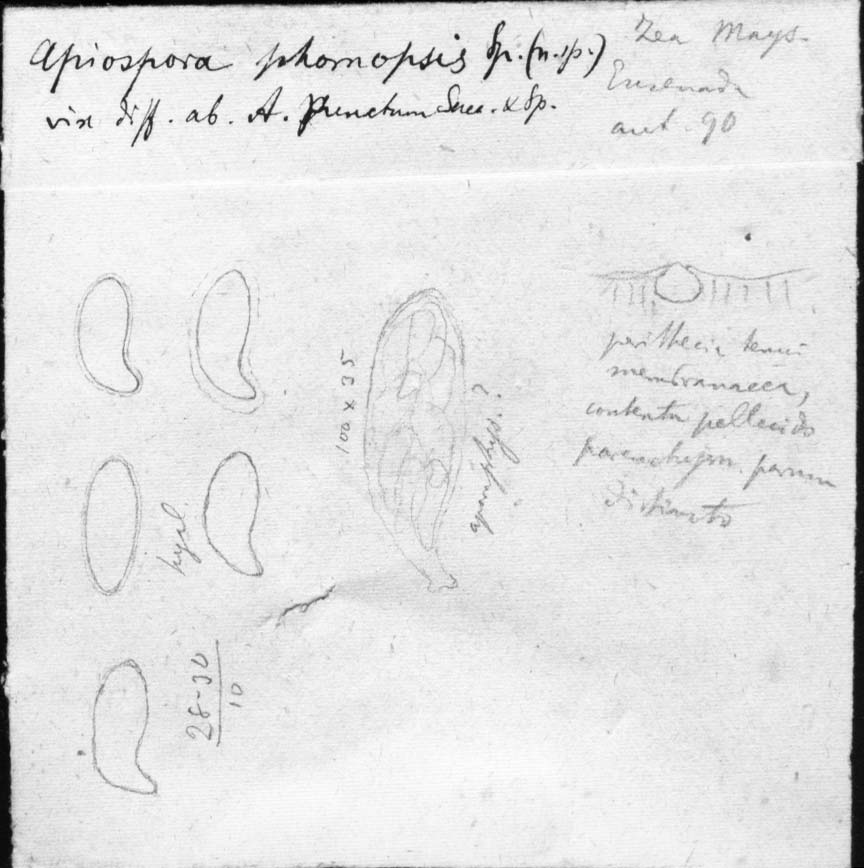 Apiospora phomopsis Sp. (n.sp.)
vix diff. ab. A. Punctum Sacc. & Sp.
Zea Mays.
Ensenada
aut. 90
100 x 35
aparaphys. ?
perithecia tenui
membranacea,
contextu pellucido
parenchym. parum
distincto
hyal.
28-30
10